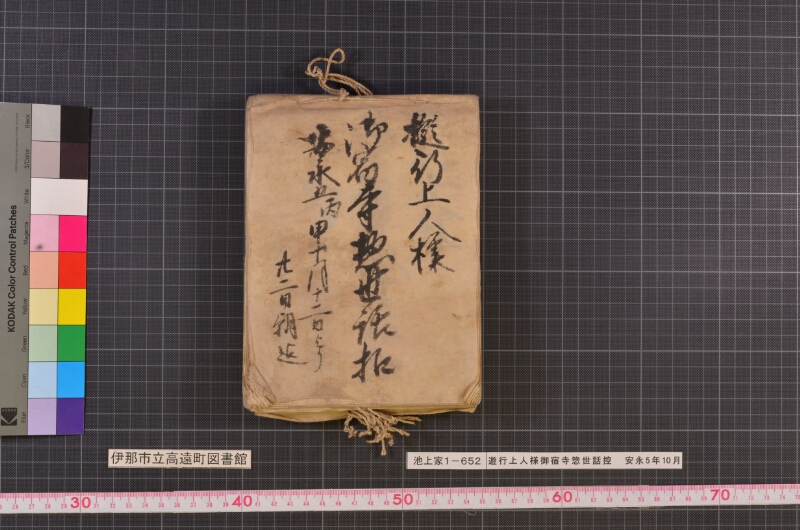 遊行上人様
御宿寺惣世話扣
安永五丙申十月十二日より
廿二日朝迄
伊那市立高遠町図書館
池上家1-652 遊行上人様御宿寺惣世話控 安永5年10月
KODAK Color Control Patches
Black
3/Color
White
Magenta
Red
Yellow
Green
Cyan
Blue
Kodak
30 40 50 60 70